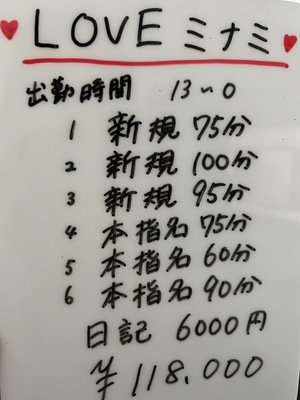 ♥ LOVE ミナミ ♥
出勤時間 13~0
1 新規 75分
2 新規 100分
3 新規 95分
4 本指名 75分
5 本指名 60分
6 本指名 90分
日記 6000円
¥118.000